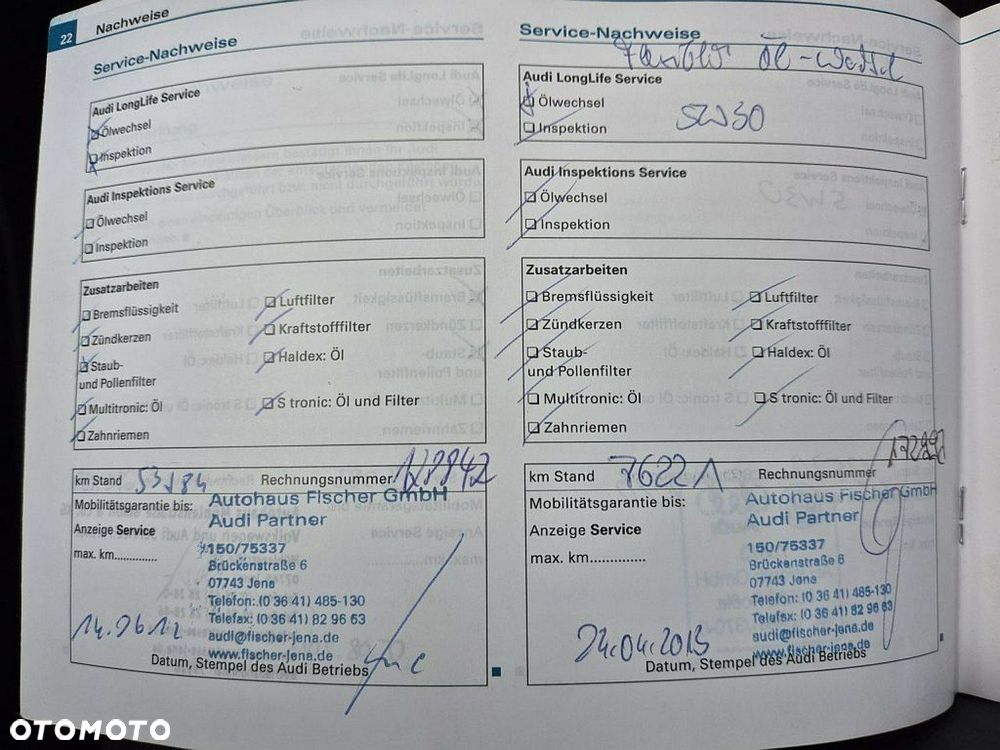 22
Nachweise
Service-Nachweise
Audi LongLife Service
Ölwechsel
Inspektion
Audi Inspektions Service
Ölwechsel
Inspektion
Zusatzarbeiten
Bremsflüssigkeit
Luftfilter
Zündkerzen
Kraftstofffilter
Staub-
und Pollenfilter
Haldex: Öl
Multitronic: Öl
S tronic: Öl und Filter
Zahnriemen
km Stand 53184 Rechnungsnummer 128842
Mobilitätsgarantie bis:
Anzeige Service
max. km.............
Autohaus Fischer GmbH
Audi Partner
150/75337
Brückenstraße 6
07743 Jena
Telefon: (0 36 41) 485-130
Telefax: (0 36 41) 82 96 63
audi@fischer-jena.de
www.fischer-jena.de
14.06.12
Datum, Stempel des Audi Betriebs
Service-Nachweise
Öl-Wechsel
Audi LongLife Service
Ölwechsel
Inspektion
5W30
Audi Inspektions Service
Ölwechsel
Inspektion
Zusatzarbeiten
Bremsflüssigkeit
Luftfilter
Zündkerzen
Kraftstofffilter
Staub-
und Pollenfilter
Haldex: Öl
Multitronic: Öl
S tronic: Öl und Filter
Zahnriemen
km Stand 76221 Rechnungsnummer
Mobilitätsgarantie bis:
Anzeige Service
max. km..............
Autohaus Fischer GmbH
Audi Partner
150/75337
Brückenstraße 6
07743 Jena
Telefon: (0 36 41) 485-130
Telefax: (0 36 41) 82 96 63
audi@fischer-jena.de
www.fischer-jena.de
24.04.2013
Datum, Stempel des Audi Betriebs
OTOMOTO